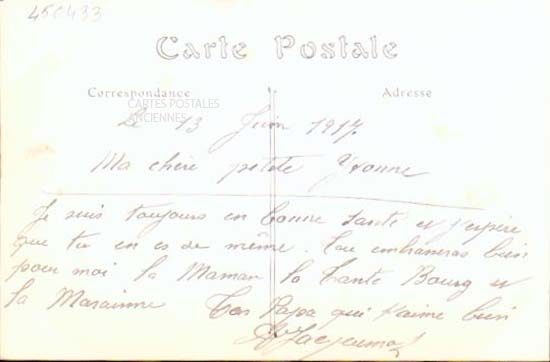 450433
Carte Postale
Correspondance
Adresse
CARTES POSTALES
ANCIENNES
Le 13 Juin 1917.
Ma chère petite Yvonne
Je suis toujours en bonne santé et j'espère
que tu en es de même. Tu embrasseras bien
pour moi la Maman la Tante Bourg et
la Marainne Ton Papa qui t'aime bien